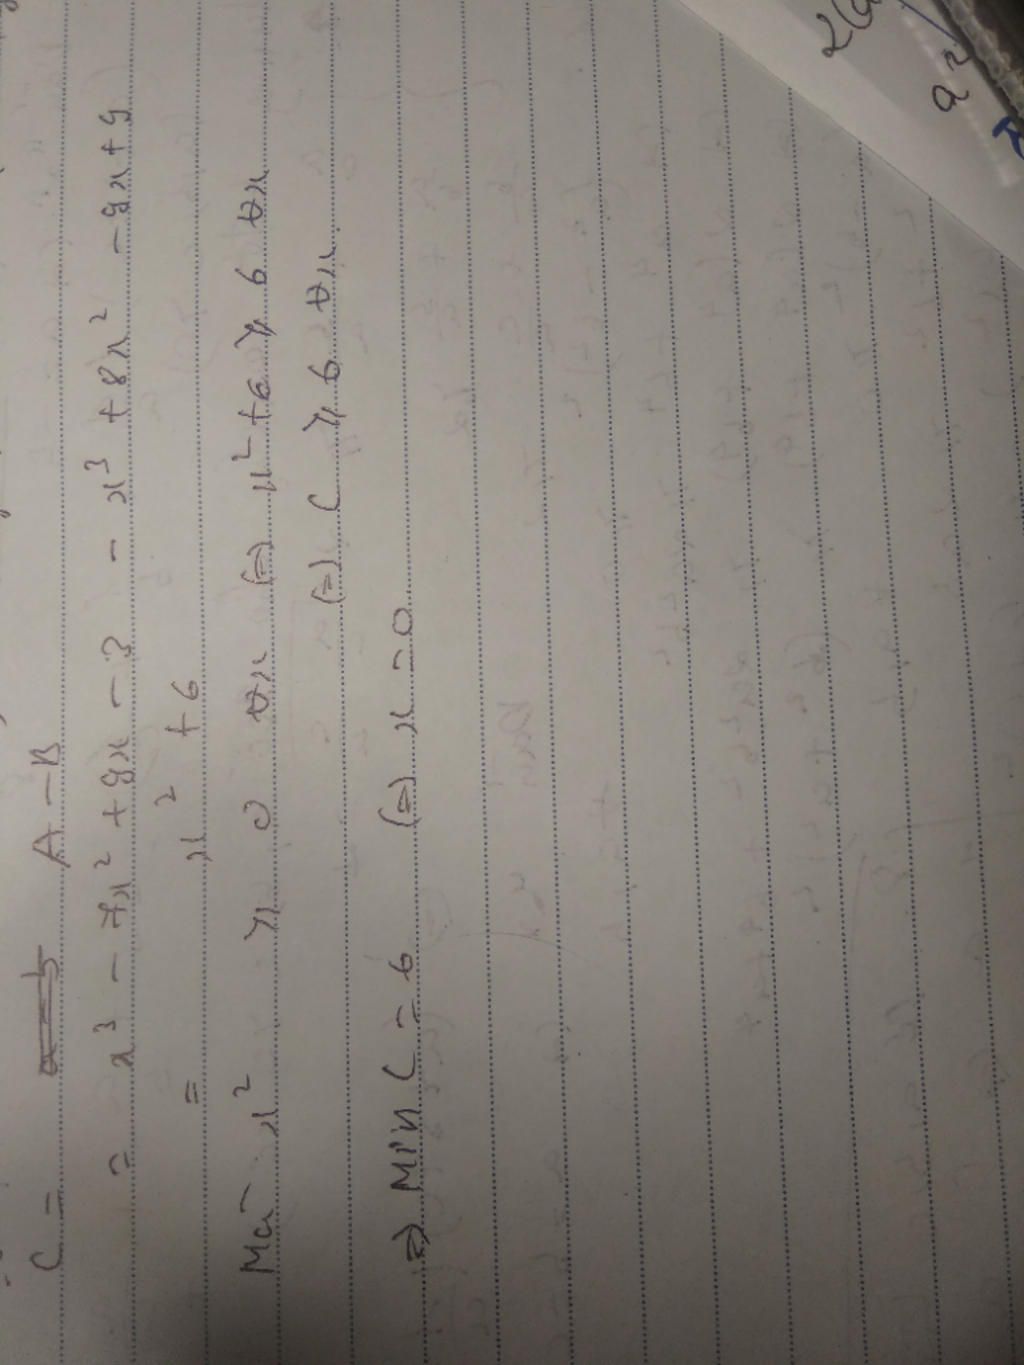 C = A - B
= x³ - 7x² + 9x - 3 - x³ + 8x² - 9x + 9
= x² + 6
Mà x² ≥ 0 ∀x (=) x² + 6 ≥ 6 ∀x
(=) C ≥ 6 ∀x.
=) Min C = 6 (=) x = 0